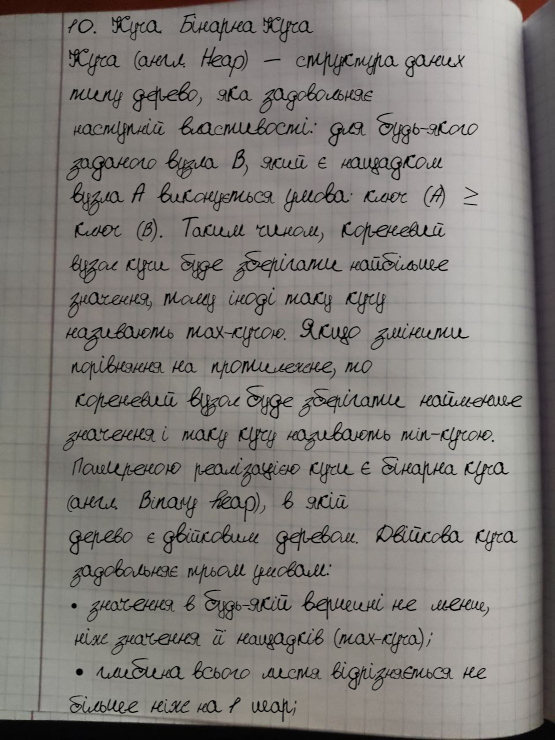 10. Куча. Бінарна Куча
Куча (англ. Heap) — структура даних
типу дерево, яка задовольняє
наступній властивості: для будь-якого
заданого вузла B, який є нащадком
вузла A виконується умова: ключ (A) ≥
ключ (B). Таким чином, кореневий
вузол кучи буде зберігати найбільше
значення, тому іноді таку кучу
називають max-кучою. Якщо змінити
порівняння на протилежне, то
кореневий вузол буде зберігати найменше
значення і таку кучу називають min-кучою.
Поширеною реалізацією кучи є бінарна куча
(англ. Binary heap), в якій
дерево є двійковим деревом. Двійкова куча
задовольняє трьом умовам:
• значення в будь-якій вершині не менше,
ніж значення її нащадків (max-куча);
• глибина всього листя відрізняється не
більше ніж на 1 шар;